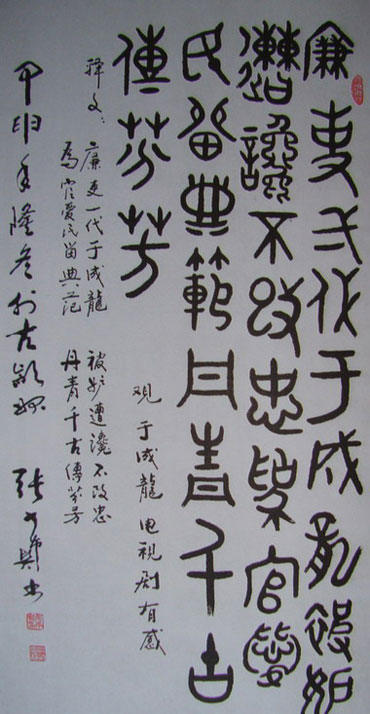 廉吏弌代于成龍被妒
遭讒不改忠為官愛
民留典範丹青千古
傳芬芳
观于成龍电视剧有感
释文：廉吏一代于成龍 被妒遭讒不改忠
為官愛民留典范 丹青千古傳芬芳
甲申年隆冬於古 张 书